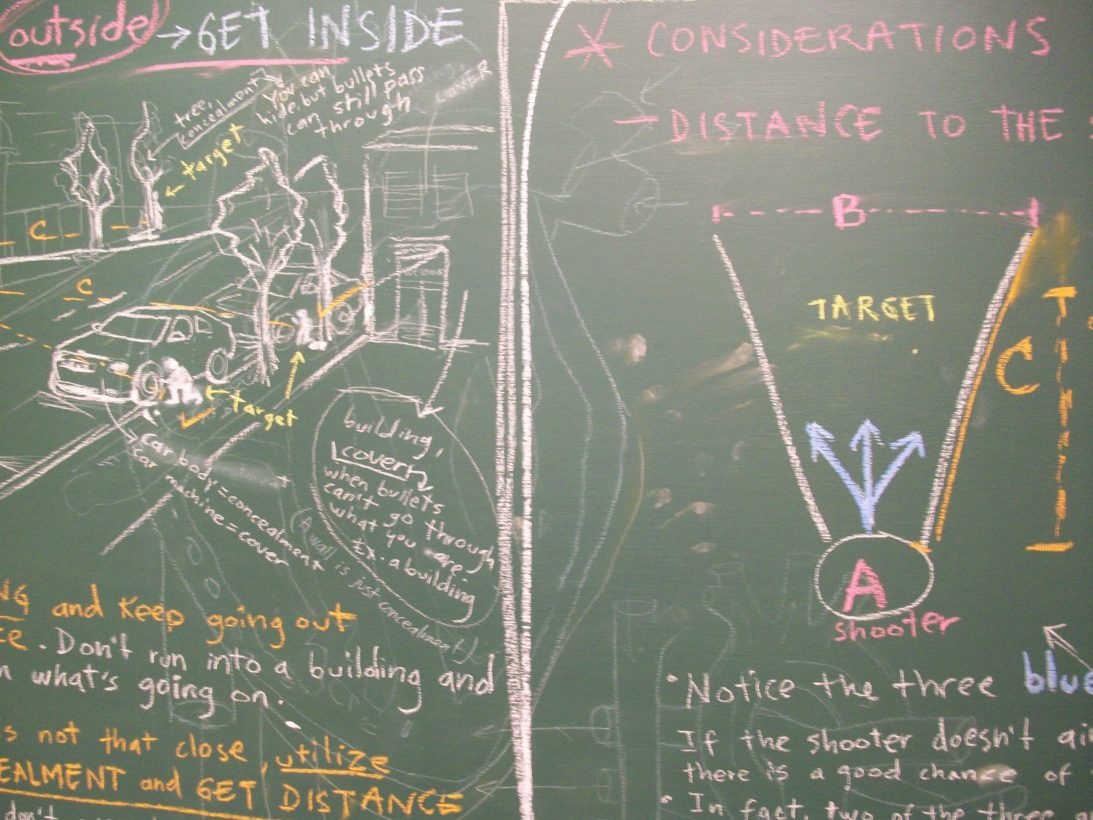 outside → GET INSIDE
tree,
concealment
You can
hide, but bullets
can still pass
through
COVER
target
C
C
target
building,
cover
when bullets
can't go through
what you are.
Ex. a building
car body = concealment
car machine = cover
(A wall is just concealment)
NG and keep going out
ce. Don't run into a building and
n what's going on.
s not that close, utilize
EALMENT and GET DISTANCE
don't
* CONSIDERATIONS
- DISTANCE TO THE S
B
TARGET
C
A
shooter
• Notice the three blue
If the shooter doesn't ai
there is a good chance of
• In fact, two of the three a